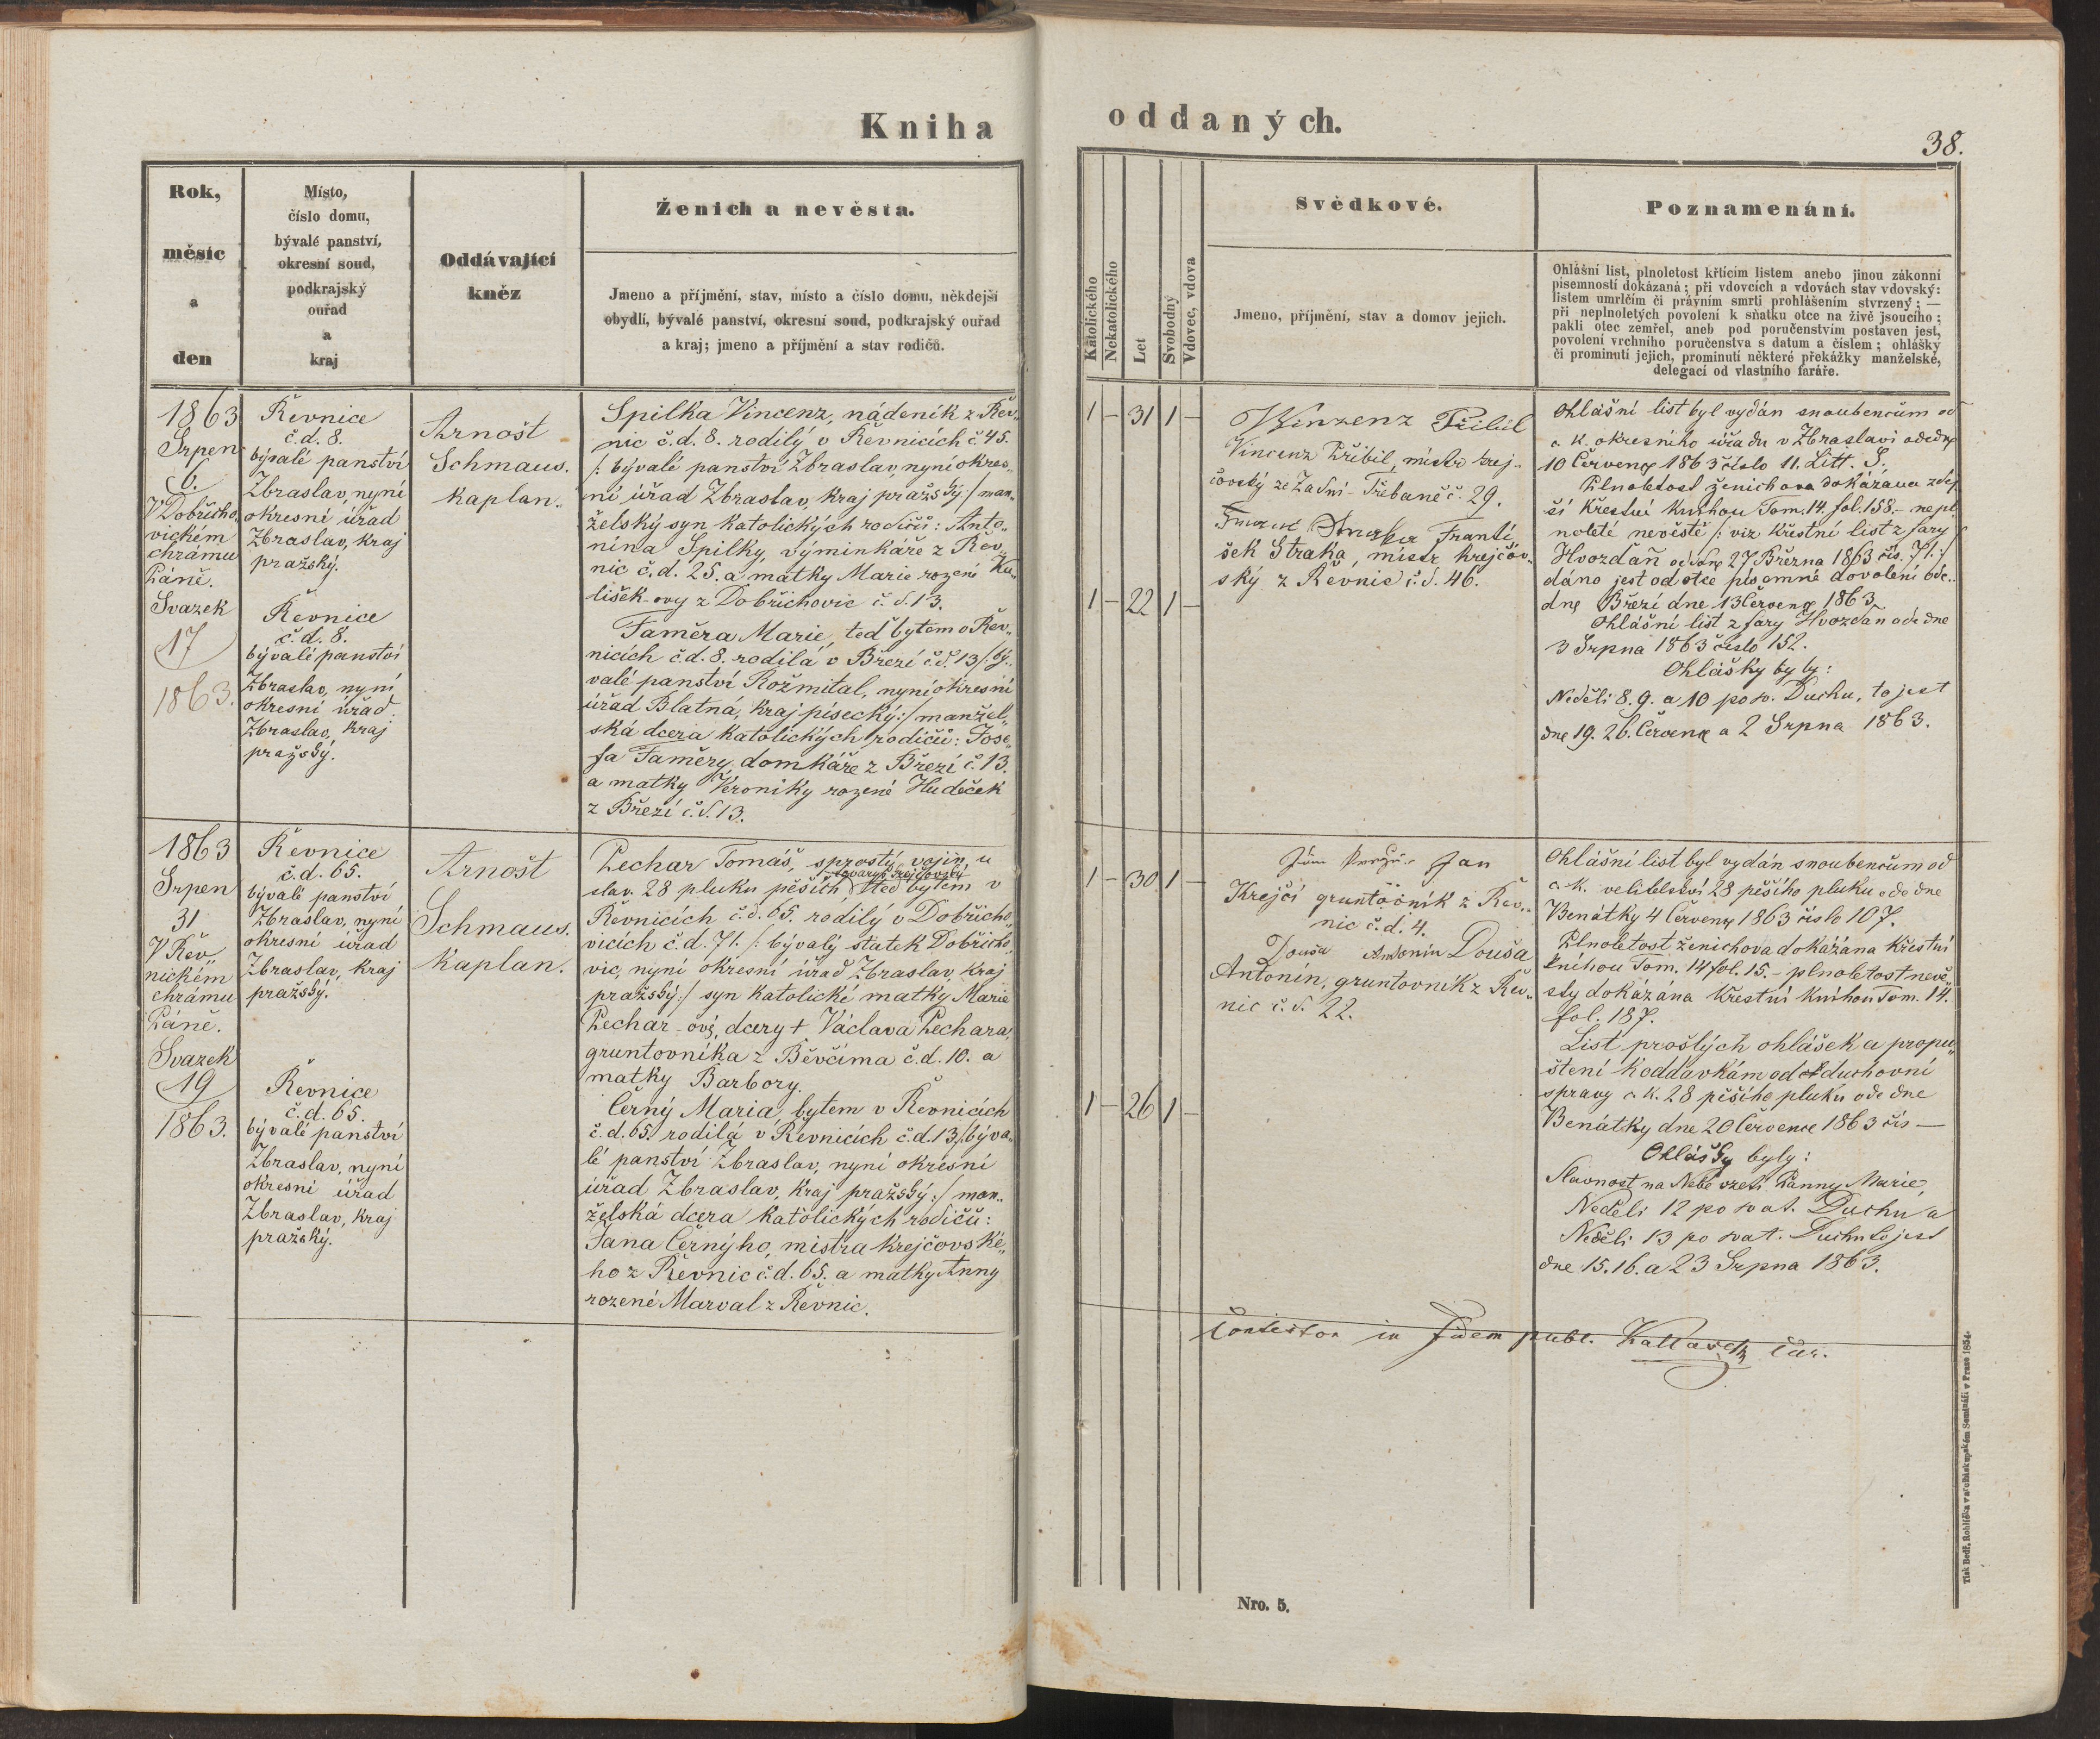 Kniha
oddaných.
38.
Rok,
měsíc
a
den
Místo,
číslo domu,
bývalé panství,
okresní soud,
podkrajský
ouřad
a
kraj
Oddávající
kněz
Ženich a nevěsta.
Jmeno a příjmění, stav, místo a číslo domu, někdejší
obydlí, bývalé panství, okresní soud, podkrajský ouřad
a kraj; jmeno a příjmění a stav rodičů.
Katolického
Nekatolického
Let
Svobodný
Vdovec, vdova
Svědkové.
Jmeno, příjmění, stav a domov jejich.
Poznamenání.
Ohlášní list, plnoletost křticím listem anebo jinou zákonní
písemností dokázaná; při vdovcích a vdovách stav vdovský:
listem umrlčím či právním smrti prohlášením stvrzený; —
při neplnoletých povolení k sňatku otce na živě jsoucího;
pakli otec zemřel, aneb pod poručenstvím postaven jest,
povolení vrchního poručenstva s datum a číslem; ohlášky
či prominutí jejich, prominutí některé překážky manželské,
delegací od vlastního faráře.
1863
Srpen
6.
V Dobřicho„
vickém
chrámu
Páně.
Svazek
17
1863.
Řevnice
č.d. 8.
bývalé panství
Zbraslav, nyní
okresní úřad
Zbraslav, kraj
pražský.
Řevnice
č.d. 8.
bývalé panství
Zbraslav, nyní
okresní úřad
Zbraslav, kraj
pražský.
Arnošt
Schmaus.
kaplan.
Spilka Vincenz, nádeník z Řev„
nic č.d. 8. rodilý v Řevnicích č. 45.
/: bývalé panství Zbraslav, nyní okres„
ní úřad Zbraslav, kraj pražský :/ man„
želský syn katolických rodičů: Anto„
nína Spilky, výminkáře z Řev„
nic č.d. 25. a matky Marie rozené Ku„
lišek-ovy z Dobřichovic č.d. 13.
Faměra Marie, teď bytem v Řev„
nicích č.d. 8. rodilá v Březí č.d. 13 /: bý„
valé panství Rožmitál, nyní okresní
úřád Blatná, kraj písecký :/ manžel„
ská dcera katolických rodičů: Jose„
fa Faměry, domkáře z Březí č. 13.
a matky Veroniky rozené Hudeček
z Březí č.d. 13.
1 – 31 1 –
1 – 22 1 –
Winzenz Přibil
Vincenz Přibil, mistr krej„
čovský ze Zadní-Třebaně č. 29.
Straka Franti„
šek Straka, mistr krejčov„
ský z Řevnic č.d. 46.
Ohlášní list byl vydán snoubencům od
c. k. okresního úřadu v Zbraslavi ode dne
10 Července 1863 číslo 11. Litt. S.
Plnoletost ženichova dokázána zdej„
ší křestní knihou Tom. 14. fol. 158. – nepl„
noleté nevěstě /: viz křestní list z fary
Hvozdan ode dne 27 Března 1863 čís. 71. :/
dáno jest od otce písemné dovolení ode„
dne Březí dne 13 Července 1863.
Ohlášní list z fary Hvozdan ode dne
3 Srpna 1863 číslo 152.
Ohlášky byly:
Neděli 8. 9. a 10 po sv. Duchu, to jest
dne 19. 26. Července a 2 Srpna 1863.
1863
Srpen
31
V Řev„
nickém
chrámu
Páně.
Svazek
19
1863.
Řevnice
č.d. 65.
bývalé panství
Zbraslav, nyní
okresní úřad
Zbraslav, kraj
pražský.
Řevnice
č.d. 65.
bývalé panství
Zbraslav, nyní
okresní úřad
Zbraslav, kraj
pražský.
Arnošt
Schmaus.
kaplan.
Pechar Tomáš, sprostý vojín u
tovaryš krejčovský
slav. 28 pluku pěších teď bytem v
Řevnicích č.d. 65. rodilý v Dobřicho„
vicích č.d. 71. /: bývalý statek Dobřicho„
vic, nyní okresní úřad Zbraslav, kraj
pražský :/ syn katolické matky Marie
Pechar-ové, dcery † Václava Pechara,
gruntovníka z Běvčíma č.d. 10. a
matky Barbory.
Černý Maria, bytem v Řevnicích
č.d. 65. rodilá v Řevnicích č.d. 13 /: býva„
lé panství Zbraslav, nyní okresní
úřad Zbraslav, kraj pražský :/ man„
želská dcera katolických rodičů:
Jana Černýho, mistra krejčovské„
ho z Řevnic č.d. 65. a matky Anny
rozené Marval z Řevnic.
1 – 30 1 –
1 – 26 1 –
Jan
Krejčí gruntovník z Řev„
nic č.d. 4.
Douša Antonín Douša
Antonín, gruntovník z Řev„
nic č.d. 22.
Ohlášní list byl vydán snoubencům od
c. k. velitelství 28 pěšího pluku ode dne
Benátky 4 Července 1863 číslo 107.
Plnoletost ženichova dokázána křestní
knihou Tom. 14 fol. 15. – plnoletost nevě„
sty dokázána křestní knihou Tom. 14.
fol. 187.
List prošlých ohlášek a propu„
štění k oddávkám od duchovní
správy c. k. 28 pěšího pluku ode dne
Benátky dne 20 Července 1863 čís —
Ohlášky byly:
Slavnost na Nebe vzetí Panny Marie,
Neděli 12 po svat. Duchu a
Neděli 13 po svat. Duchu to jest
dne 15. 16. a 23 Srpna 1863.
in fidem publ.
Nro. 5.
Tisk Bedř. Rohlíčka v arcibiskupském Semináři v Praze 1854.